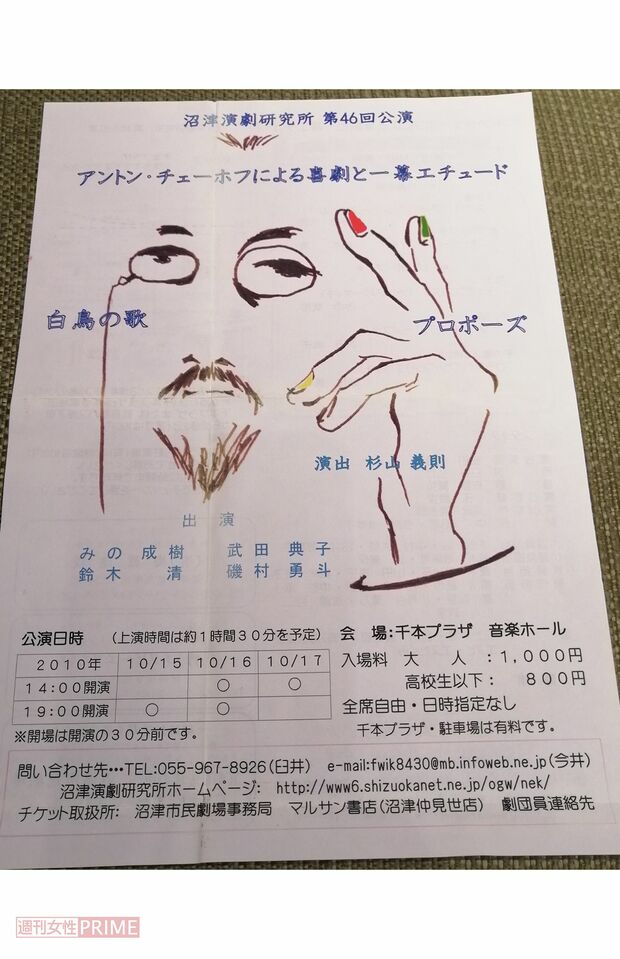 沼津演劇研究所 第46回公演
アントン・チェーホフによる喜劇と一幕エチュード
白鳥の歌
プロポーズ
演出 杉山 義則
出 演
みの 成樹 武田 典子
鈴木 清 磯村 勇斗
公演日時 (上演時間は約1時間30分を予定)
2010年 10/15 10/16 10/17
14:00開演 ○ ○
19:00開演 ○ ○
※開場は開演の30分前です。
会 場:千本プラザ 音楽ホール
入場料 大 人 :1,000円
高校生以下: 800円
全席自由・日時指定なし
千本プラザ・駐車場は有料です。
問い合わせ先…TEL:055-967-8926(臼井) e-mail:fwik8430@mb.infoweb.ne.jp(今井)
沼津演劇研究所ホームページ: http://www6.shizuokanet.ne.jp/ogw/nek/
チケット取扱所: 沼津市民劇場事務局 マルサン書店(沼津仲見世店) 劇団員連絡先
週刊女性PRIME